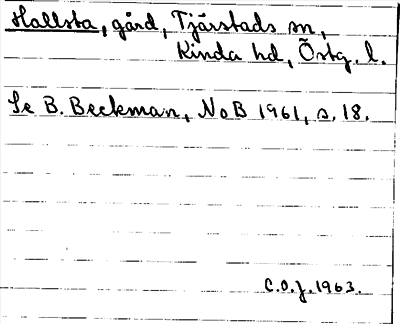 Hallsta, gård, Tjärstads sn,
Kinda hd, Östg. l.
Se B. Beckman, NoB 1961, s. 18.
C.O.J. 1963.